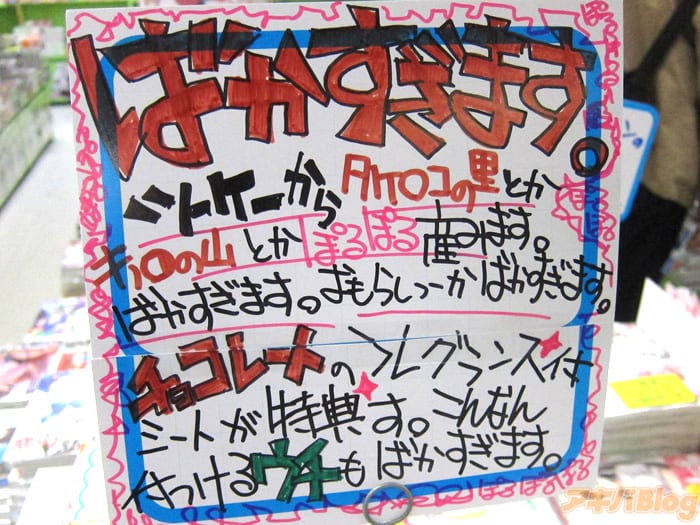 ばかすぎます。
シトケーから タケロコの里とか
キノロの山とか ぽるぽる産みます。
ばかすぎます。おもらしっーかばかすぎます。
チョコレートのフレグランス付
ミートが特典す。こんなん
付つけるウチもばかすぎます。
アキバBlog